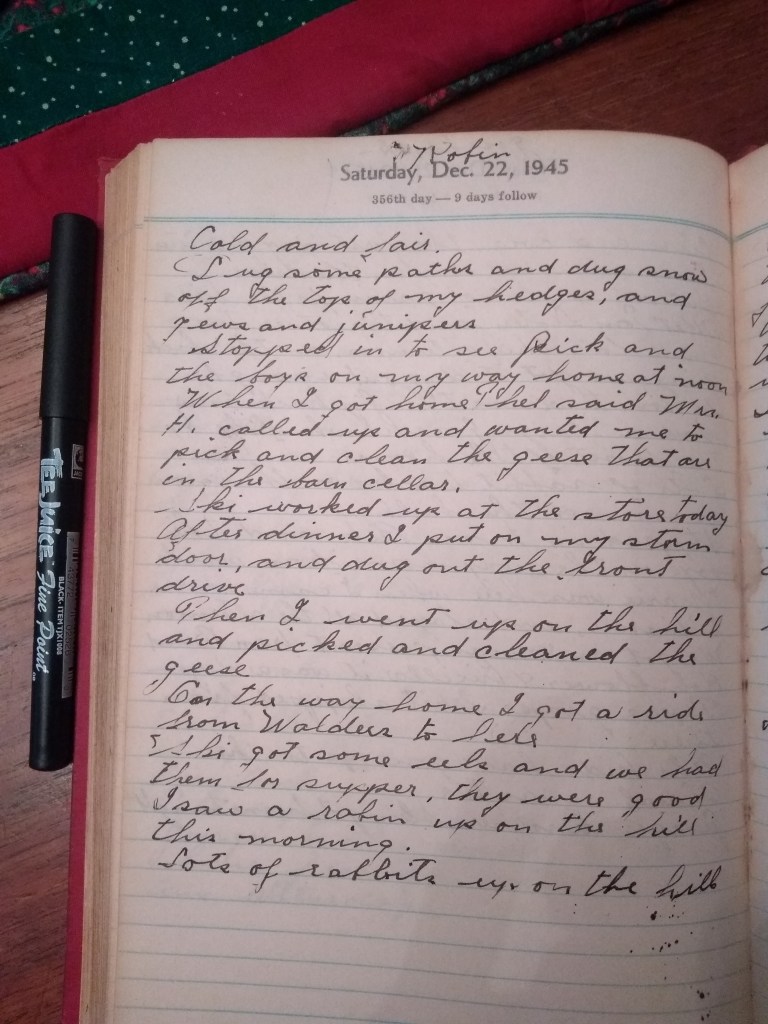 Robin
Saturday, Dec. 22, 1945
356th day — 9 days follow
Cold and fair.
I dug some paths and dug snow
off the top of my hedges, and
yews and junipers
Stopped in to see Pick and
the boys on my way home at noon
When I got home Thel said Mrs.
H. called up and wanted me to
pick and clean the geese that are
in the barn cellar.
Ski worked up at the store today
After dinner I put on my storm
door, and dug out the front
drive
Then I went up on the hill
and picked and cleaned the
geese
On the way home I got a ride
from Walders to here
Ski got some eels and we had
them for supper, they were good
I saw a robin up on the hill
this morning.
Lots of rabbits up on the hill
TEE JUICE Fine Point
BLACK-ITEM